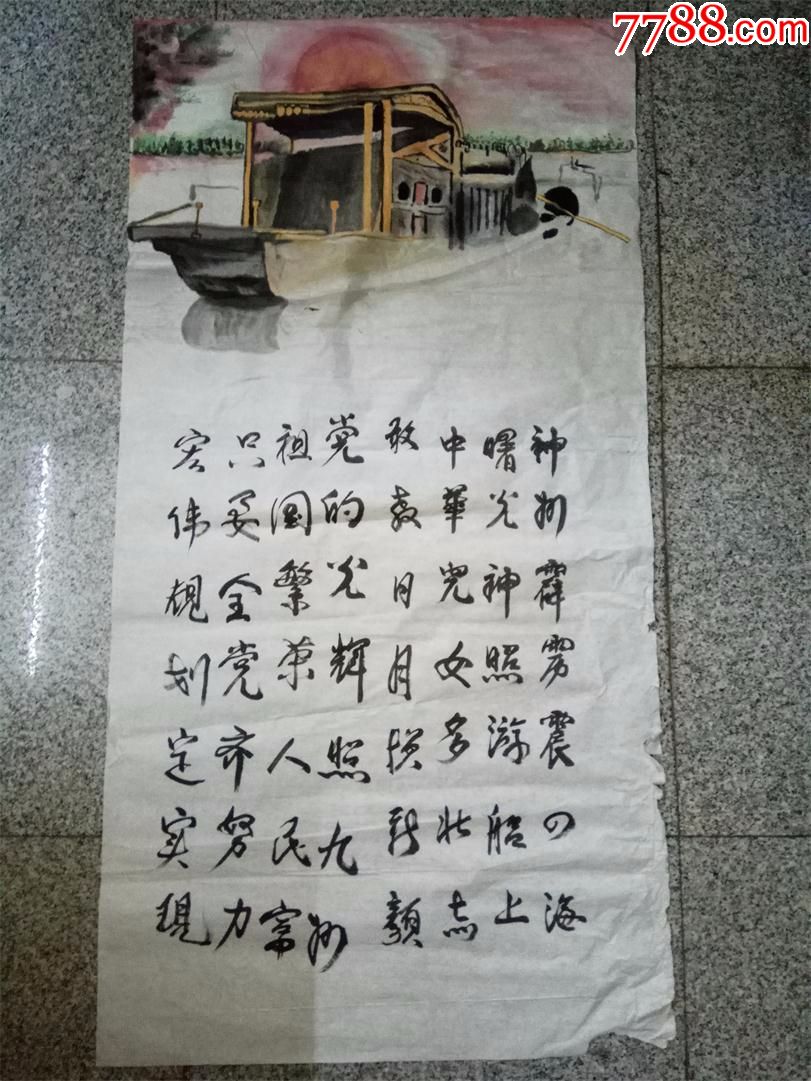 7788.com
神州霹雳震四海
曙光神照游船上
中华儿女多壮志
敢教日月换新颜
党的光辉照九州
祖国繁荣人民富
只要全党齐努力
宏伟规划定实现